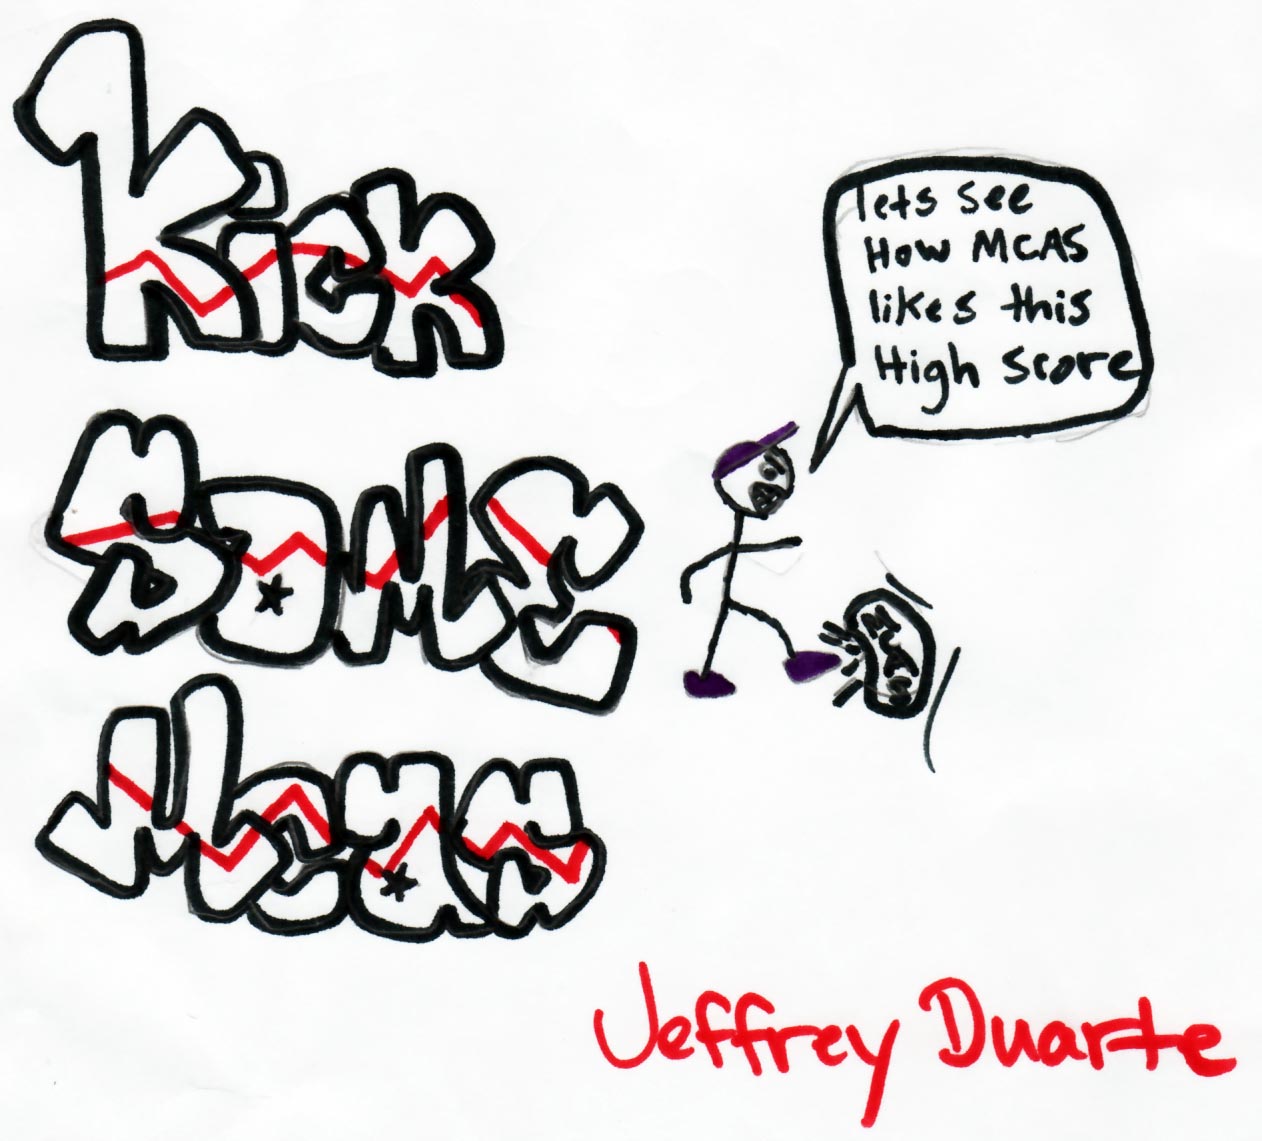 Kick
Some
Mcas
lets see
How MCAS
likes this
High Score
MCAS
Jeffrey Duarte